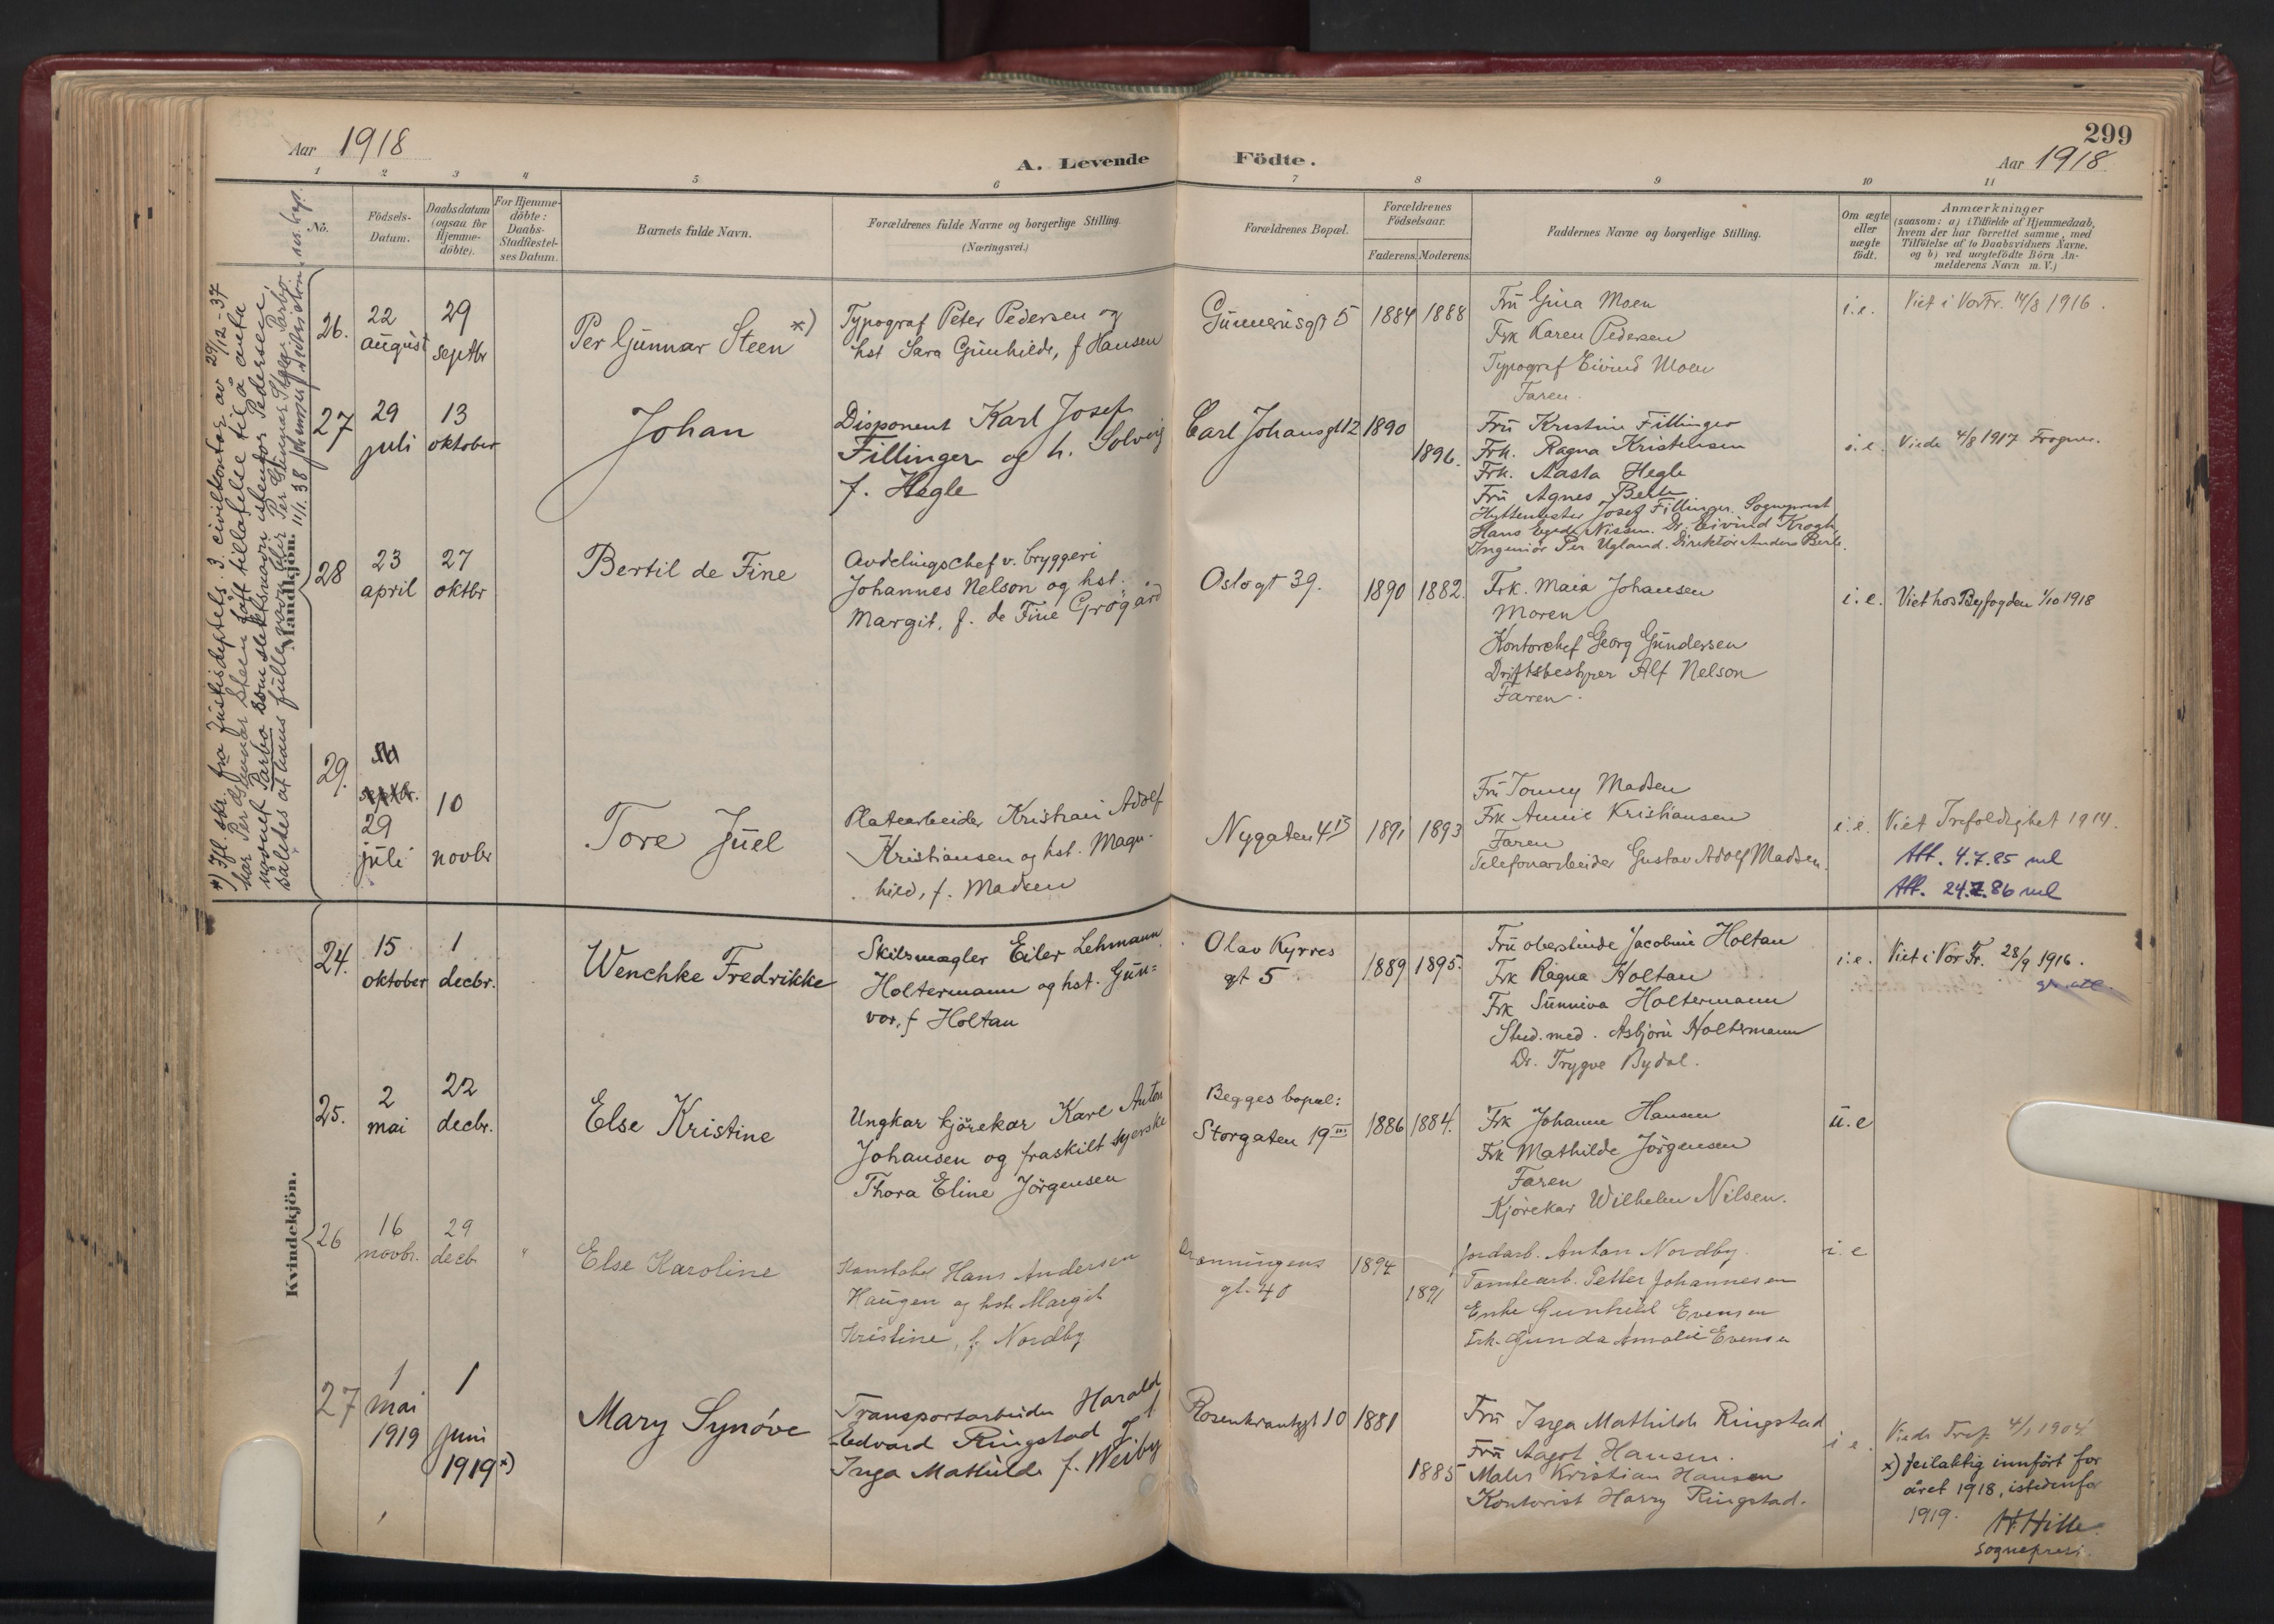 299
Aar 1918
A. Levende Födte.
Aar 1918
1 2 3 4 5 6 7 8 9 10 11
No.
Födsels-
Datum.
Daabsdatum
(ogsaa for
Hjemme-
döbte).
For Hjemme-
döbte:
Daabs-
Stadfæstel-
ses Datum.
Barnets fulde Navn.
Forældrenes fulde Navne og borgerlige Stilling.
(Næringsvei.)
Forældrenes Bopæl.
Forældrenes
Födselsaar.
Faderens. Moderens.
Faddernes Navne og borgerlige Stilling.
Om ægte
eller
uægte
födt.
Anmærkninger
(saasom: a) i Tilfælde af Hjemmedaab,
hvem der har forrettet samme, med
Tilföielse af to Daabsvidners Navne.
og b) ved uægtefödte Börn An-
melderens Navn m. V.)
*) Ifl. skr. fra Justisdeptets 3. civilkontor av 29/12-37
har Per Gunnar Steen fått tillatelse til å anta
navnet Parbo som slektsnavn istedenfor Pedersen,
således at hans fulle navn blir Per Gunnar Steen Parbo.
11/1. 38
res. kap.
Mandkjön.
26.
22
august
29
septbr
Per Gunnar Steen *)
Typograf Peter Pedersen og
hst Sara Gunhilde, f Hansen
Gunnerusgt 5
1884 1888
Fru Gina Moen
Frk Karen Pedersen
Typograf Eivind Moen
Faren
i.e.
Viet i VorFr. 14/8 1916.
27
29
juli
13
oktober
Johan
Disponent Karl Josef
Fillinger og h. Solveig
f. Hegle
Carl Johansgt 12
1890
1896.
Fru Kristine Fillinger
Frk. Ragna Kristensen
Frk. Aasta Hegle
Fru Agnes Berle
Hyttemester Josef Fillinger. Sogneprest
Hans Egede Nissen. Dr. Eivind Krogh,
Ingeniör Per Ugland. Direktör Anders Berle.
i.e.
Viede 4/8 1917 Frogner.
28
23
april
27
oktbr
Bertil de Fine
Avdelingschef v. bryggeri
Johannes Nelson og hst.
Margit, f. de Fine Grögård
Oslogt 39.
1890 1882.
Frk. Maia Johansen
Moren
Kontorchef Georg Gundersen
Driftsbestyrer Alf Nelson
Faren.
i.e.
Viet hos Byfogden 1/10 1918
29.
septbr.
29
juli
10
novbr
Tore Juel
Platearbeider Kristian Adolf
Kristiansen og hst. Magn-
hild, f. Madsen
Nygaten 4 B
1891 1893
Fru Tonny Madsen
Frk Annie Kristiansen
Faren
Telefonarbeider Gustav Adolf Madsen.
i.e.
Viet Trefoldighet 1914.
Att. 4.7.85 ml
Att. 24.7.86 ml
Kvindekjön.
24.
15
oktober
1
decbr.
Wenchke Fredrikke
Skibsmægler Eiler Lehmann
Holtermann og hst. Gun=
vor, f Holtan
Olav Kyrres
gt 5
1889 1895.
Fru oberstinde Jacobine Holtan
Frk Ragna Holtan
Frk Sunniva Holtermann
Stud. med. Asbjörn Holtermann
Dr. Trygve Bydal.
i.e.
Viet i Vor Fr. 28/9 1916.
25.
2
mai
22
decbr.
Else Kristine
Ungkar kjörekar Karl Anton
Johansen og fraskilt syerske
Thora Eline Jörgensen
Begges bopæl:
Storgaten 19 III
1886 1884.
Frk Johanne Hansen
Frk Mathilde Jörgensen
Faren
Kjörekar Wilhelm Nilsen.
u.e
26
16
novbr.
29
decb
"
Else Karoline
Konstabel Hans Andersen
Haugen og hst. Margit
Kristine, f. Nordby
Dronningens
gt. 40
1894
1891
Jordarb. Anton Nordby.
Tomtearb. Petter Johannesen
Enke Gunhild Evensen
Frk. Gunda Amalie Evensen
i.e
27
1
mai
1919
1
juni
1919 x)
Mary Synöve
Transportarbeider Harald
Edvard Ringstad og
Inga Mathilde f. Weiby
Rosenkrantzgt 10
1881
1885
Fru Inga Mathilde Ringstad
Fru Aagot Hansen.
Maler Kristian Hansen
Kontorist Harry Ringstad.
i e.
Viede Tref. 4/1 1904.
x) feilaktig innfört for
året 1918, istedenfor
1919.
H. Hille.
sogneprest.